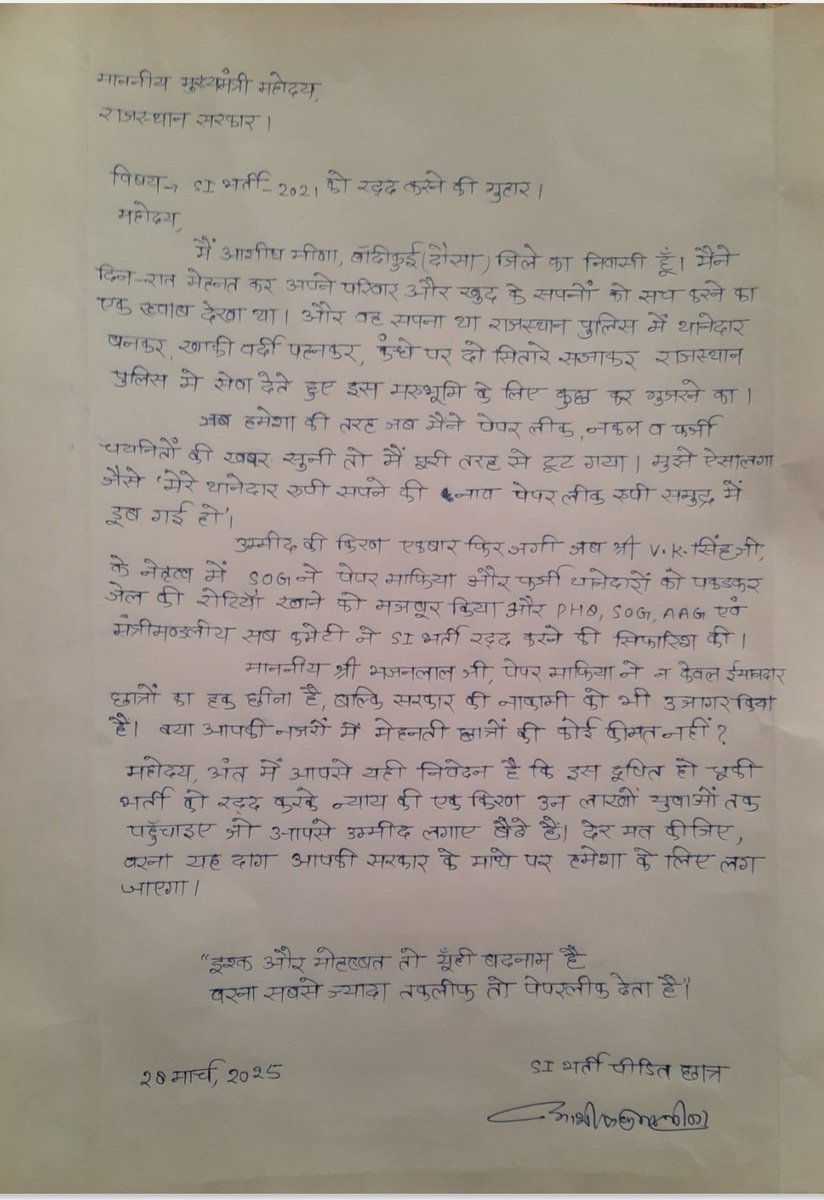 माननीय मुख्यमंत्री महोदय,
राजस्थान सरकार।
विषय→ SI भर्ती-2021 को रद्द करने की गुहार।
महोदय,
मैं आशीष मीणा, बाँदीकुई(दौसा) जिले का निवासी हूँ। मैंने
दिन-रात मेहनत कर अपने परिवार और खुद के सपनों को सच करने का
एक ख्वाब देखा था। और वह सपना था राजस्थान पुलिस में थानेदार
बनकर, खाकी वर्दी पहनकर, कंधे पर दो सितारे सजाकर राजस्थान
पुलिस में सेवा देते हुए इस मरुभूमि के लिए कुछ कर गुजरने का।
जब हमेशा की तरह जब मैंने पेपर लीक, नकल व फर्जी
चयनितों की खबर सुनी तो मैं पूरी तरह से टूट गया। मुझे ऐसा लगा
जैसे 'मेरे थानेदार रुपी सपने की नाव पेपर लीक रुपी समुद्र में
डूब गई हो'।
उम्मीद की किरण एकबार फिर जगी जब श्री V.K.सिंह जी,
के नेतृत्व में SOG ने पेपर माफिया और फर्जी थानेदारों को पकडकर
जेल की रोटियाँ खाने को मजबूर किया और PHQ, SOG, AAG एवं
मंत्रीमण्डलीय सब कमेटी ने SI भर्ती रद्द करने की सिफारिश की।
माननीय श्री भजनलाल जी, पेपर माफिया ने न केवल ईमानदार
छात्रों का हक छीना है, बल्कि सरकार की नाकामी को भी उजागर किया
है। क्या आपकी नजरों में मेहनती छात्रों की कोई कीमत नहीं?
महोदय, अंत में आपसे यही निवेदन है कि इस दूषित हो चूकी
भर्ती को रद्द करके न्याय की एक किरण उन लाखों युवाओं तक
पहुँचाइए जो आपसे उम्मीद लगाए बैठे हैं। देर मत कीजिए,
वरना यह दाग आपकी सरकार के माथे पर हमेशा के लिए लग
जाएगा।
"इश्क और मोहब्बत तो यूँही बदनाम है
वरना सबसे ज्यादा तकलीफ तो पेपरलीक देता है"
28 मार्च, 2025
SI भर्ती पीडित छात्र